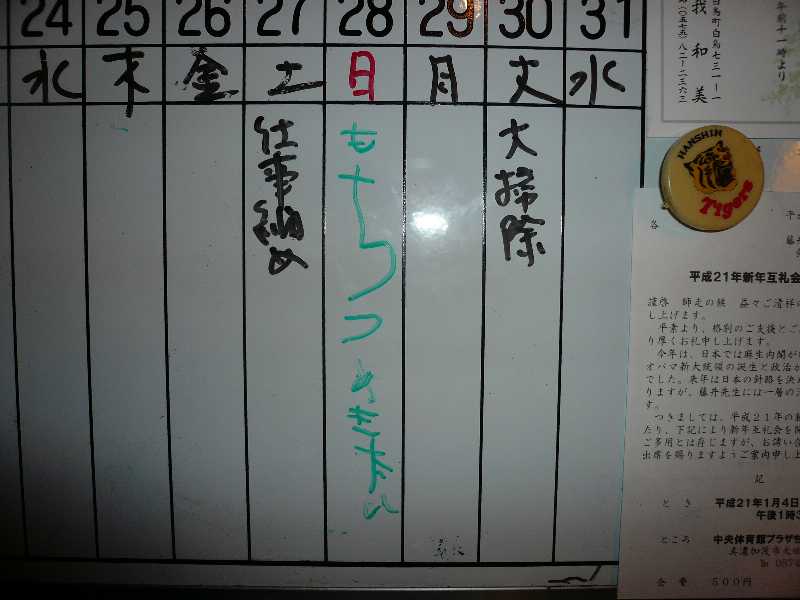 24 25 26 27 28 29 30 31
水 木 金 土 日 月 火 水
仕事納め
もちつき
大掃除
HANSHIN
Tigers
年前十一時より
白鳥町白鳥七三一ー一
我和美
各
平成21年新年互礼会
謹啓 師走の候 益々ご清祥の
し上げます。
平素より、格別のご支援とご
り厚くお礼申し上げます。
今年は、日本では麻生内閣が
オバマ新大統領の誕生と政治が
でした。来年は日本の針路を決
りますが、藤井先生には一層の
す。
つきましては、平成21年の
たり、下記により新年互礼会を開
ご多用とは存じますが、お誘い
出席を賜りますようご案内申し上
記
とき 平成21年1月4日
午後1時3
ところ 中央体育館プラザ
美濃加茂市
会費 500円